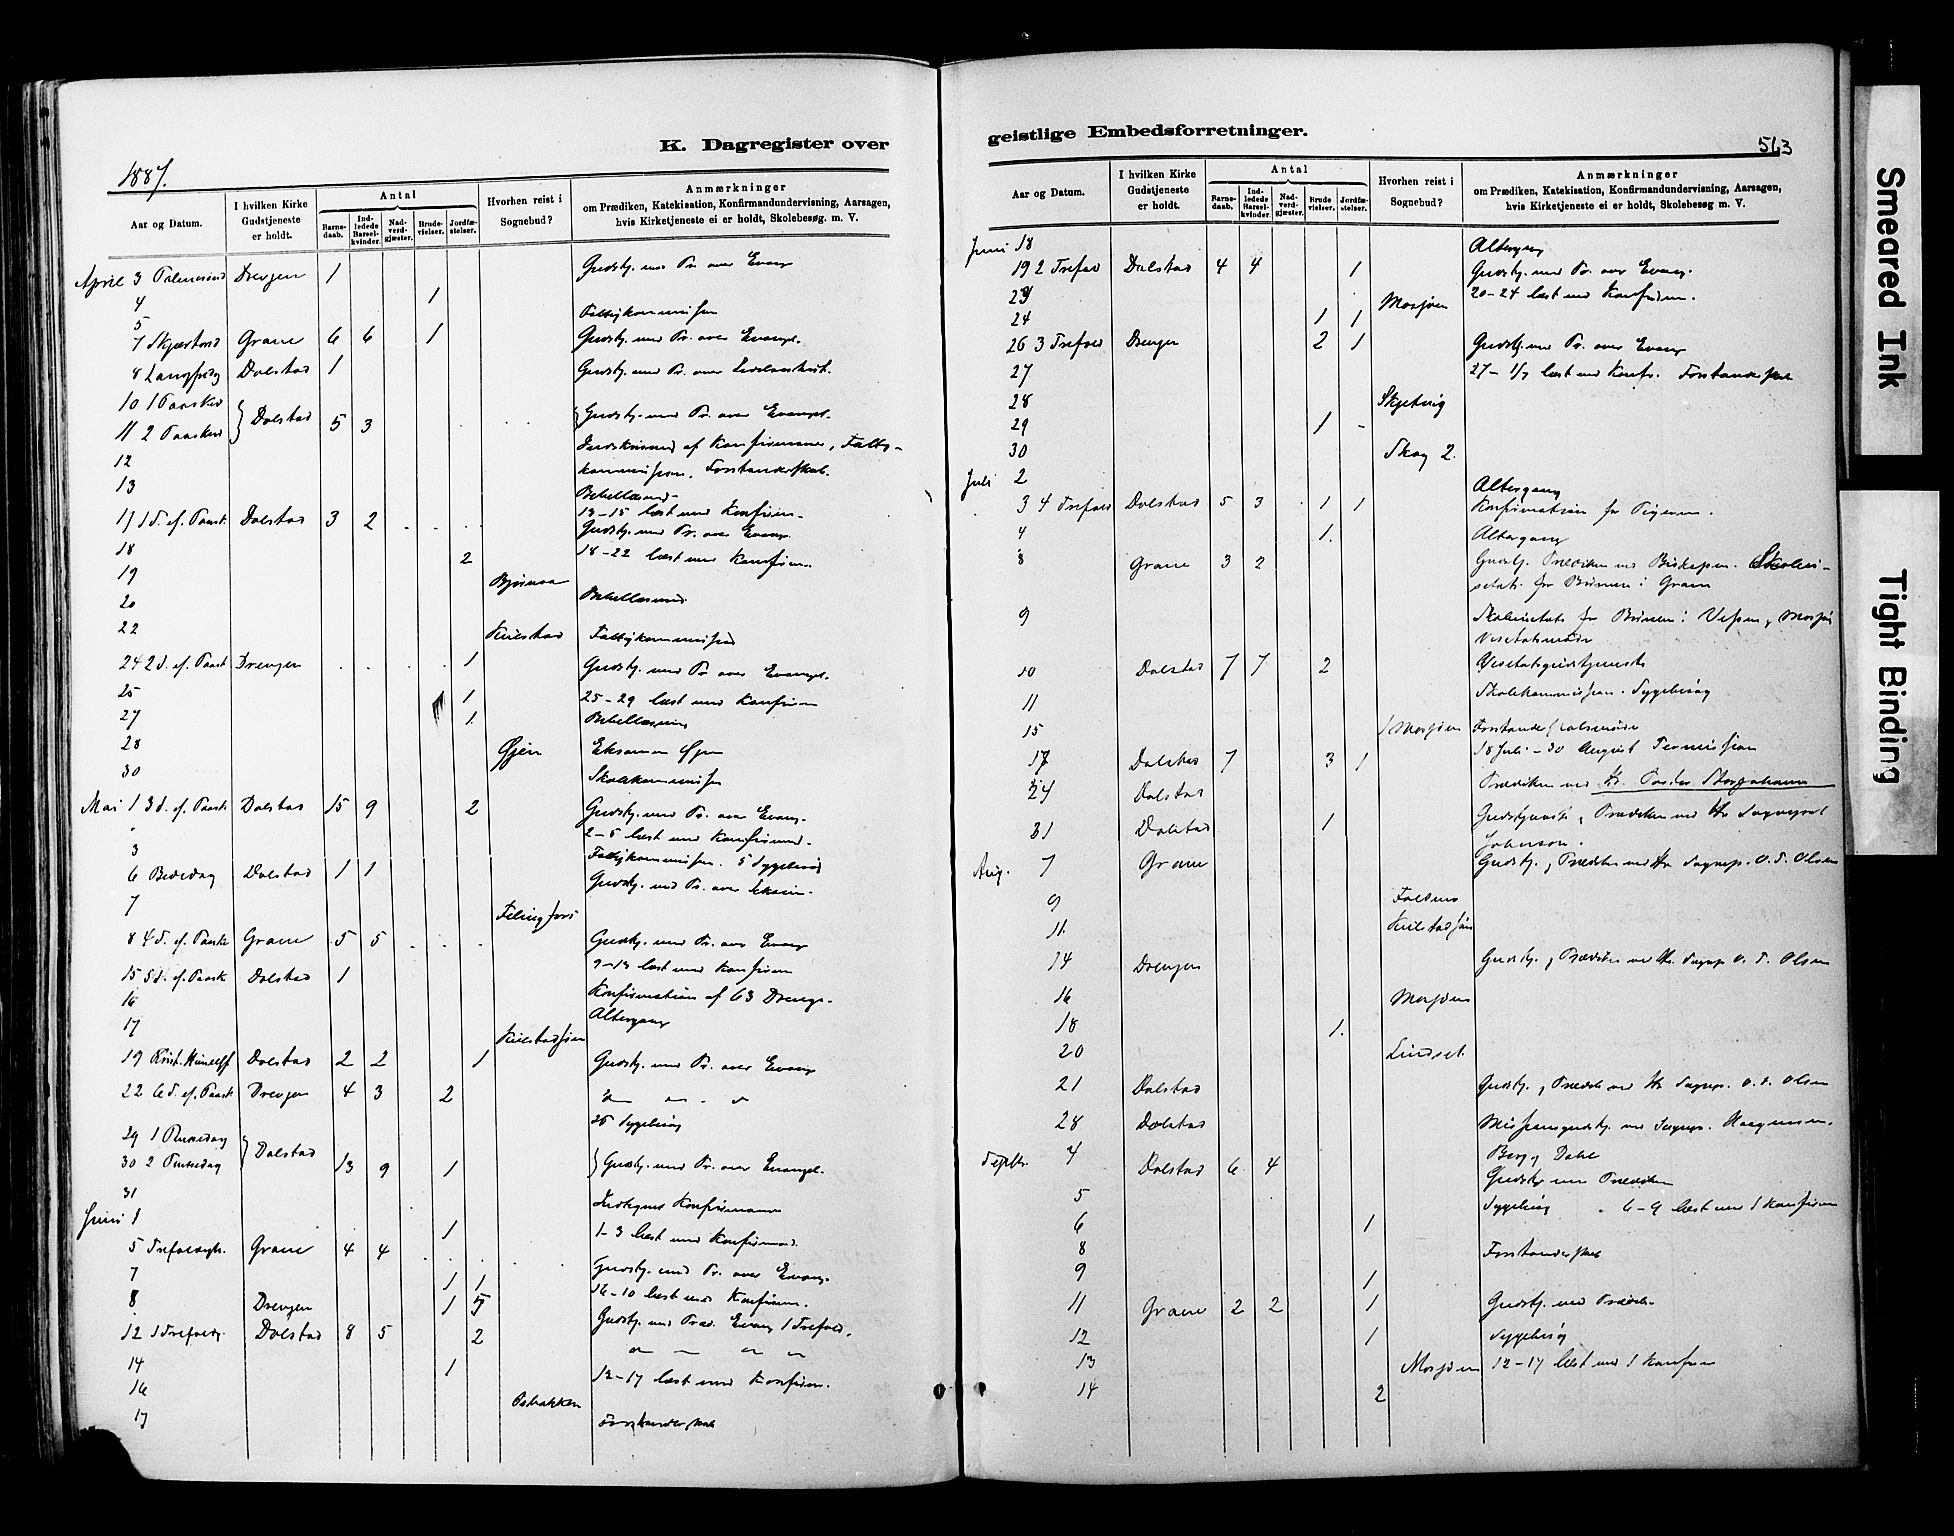 K. Dagregister over
1887.
Aar og Datum. I hvilken Kirke Gudstjeneste er holdt. Antal Hvorhen reist i Sognebud? Anmærkninger
Barnedaab. Indledede Barselkvinder. Nadverdgjæster. Brudevielser. Jordfæstelser.
om Prædiken, Katekisation, Konfirmandundervisning, Aarsagen,
hvis Kirketjeneste ei er holdt, Skolebesøg. m. V.
April 3 Palmesønd Drevjen 1 Gudstj. med Pr. over Evang
4 1
5 Fattigkommission
7 Skjærtorsd Grane 6 6 1 Gudstj. med Pr. over Evangl.
8 Langfredag Dolstad 1 Gudstj. med Pr. over
10 1 Paasked
11 2 Paasked } Dolstad 5 3 } Gudstj. med Pr. over Evangl.
12 Indskrivning af Konfirmanner, Fattig-
13 kommission, Forstanderskab.
Bibellæsning
13-15 læst med Konfirm.
17 1 S. ef. Paask. Dolstad 3 2 Gudstj. med Pr. over Evang.
18 2 18-22 læst med Konfirm.
19 Bjørnaa
20 Bibellæsning
22 Kulstad Fattigkommission
24 2 S. ef. Paask Drevjen 1 Gudstj. med Pr over Evangl.
25 1 25-29 læst med Konfirm
27 1 Bibellæsning
28 Øjen Eksamen Øjen
30 Skolekommission
Mai 1 3 S. ef. Paask Dolstad 15 9 2 Gudstj. med Pr. over Evang.
2-5 læst med Konfirmand.
3 Fattigkommission. 5 Sygebesøg
6 Bededag Dolstad 1 1 Gudstj. med Pr. over
7
8 4 S. ef. Paaske Grane 5 5 Gudstj. med Pr. over Evang
9-13 læst med Konfirm
15 5 S. ef. Paask Dolstad 1 Konfirmation af 63 Drenge.
16 Altergang
17 Kulstadsjøen
19 Krist. Himmelf Dolstad 2 2 1 Gudstj. med Pr. over Evang
22 6 S. ef. Paask Drevjen 4 3 2
26 Sygebesøg
29 1 Pinsedag
30 2 Pinsedag } Dolstad 13 9 1 } Gudstj. med Pr. over Evangl.
31
Juni 1 1 1-3 læst med Konfirmand.
5 Trefoldigh. Grane 4 4 Gudstj. med Pr. over Evang.
7 1 1 læst med Konfirm.
8 Drevjen 1 5 Gudstj. med Præd. Evang 1 Trefold.
12 1 Trefoldg. Dolstad 8 5 2
14 1 12-17 læst med Konfirm.
16
17 Forstanderskab
geistlige Embedsforretninger.
563
Aar og Datum. I hvilken Kirke Gudstjeneste er holdt. Antal Hvorhen reist i Sognebud? Anmærkninger
Barnedaab. Indledede Barselkvinder. Nadverdgjæster. Brudevielser. Jordfæstelser.
om Prædiken, Katekisation, Konfirmandundervisning, Aarsagen,
hvis Kirketjeneste ei er holdt, Skolebesøg m. V.
Juni 18 Altergang
19 2 Trefold Dolstad 4 4 1 Gudstj. med Pr. over Evang.
23 Mosjøen 20-24 læst med Konfirm.
24 1 1
26 3 Trefold Drevjen 2 1 Gudstj. med Pr. over Evang
27 27-1/7 læst med Konfr. Forstanderskab
28
29 1
30 Skog 2.
Juli 2 Altergang
3 4 Trefold Dolstad 5 3 1 1 Konfirmation for Pigerne.
4 1. Altergang
8 Grane 3 2 Gudstj. Prædiken ved Biskopen. Skolevi-
sitats for Børnene i Grane
9 Skolevisitats for Børnene i Vefsen og Mosjøen
Visitatsmøde
10 Dolstad 7 7 2 Visitatsgudstjeneste
11 Skolekommission. Sygebesøg
15 Mosjøen Forstanderskabsmøde
18 Juli-30 August Permission
17 Dolstad 7 3 1
24 Dolstad Prædiken ved Hr. Pastor
31 Dolstad 1 Gudstjeneste og Prædiken ved Hr Sogneprest
Johnson.
Aug. 7 Grane Gudstj. og Prædiken ved Hr Sognep. O. T. Olsen
9
11. Kulstadsjøen
14 Drevjen Gudstj. og Prædiken ved Hr. Sognep O. T. Olsen
16 Mosjøen
18 1.
20 Lindset
21 Dolstad Gudstj. og Prædik ved Hr Sognep. O. T. Olsen
28 Dolstad Missionsgudstj. ved Sognep.
Septbr. 4 Dolstad 6 4 Berg og Dahl
Gudstj med Prædiken
5 Sygebesøg 6-9 læst med Konfirm
6 1
8 Forstanderskab
9 1
11 Grane 2 2 1 Gudstj. med Prædik.
12 1 Sygebesøg
13 Mosjøen 12-17 læst med Konfirm
14 2
Smeared Ink
Tight Binding